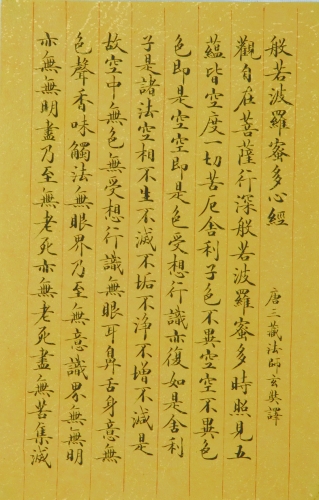 般若波羅蜜多心經
唐三藏法師玄奘譯
觀自在菩薩行深般若波羅蜜多時照見五
蘊皆空度一切苦厄舍利子色不異空空不異色
色即是空空即是色受想行識亦復如是舍利
子是諸法空相不生不滅不垢不淨不增不減是
故空中無色無受想行識無眼耳鼻舌身意無
色聲香味觸法無眼界乃至無意識界無無明
亦無無明盡乃至無老死亦無老死盡無苦集滅